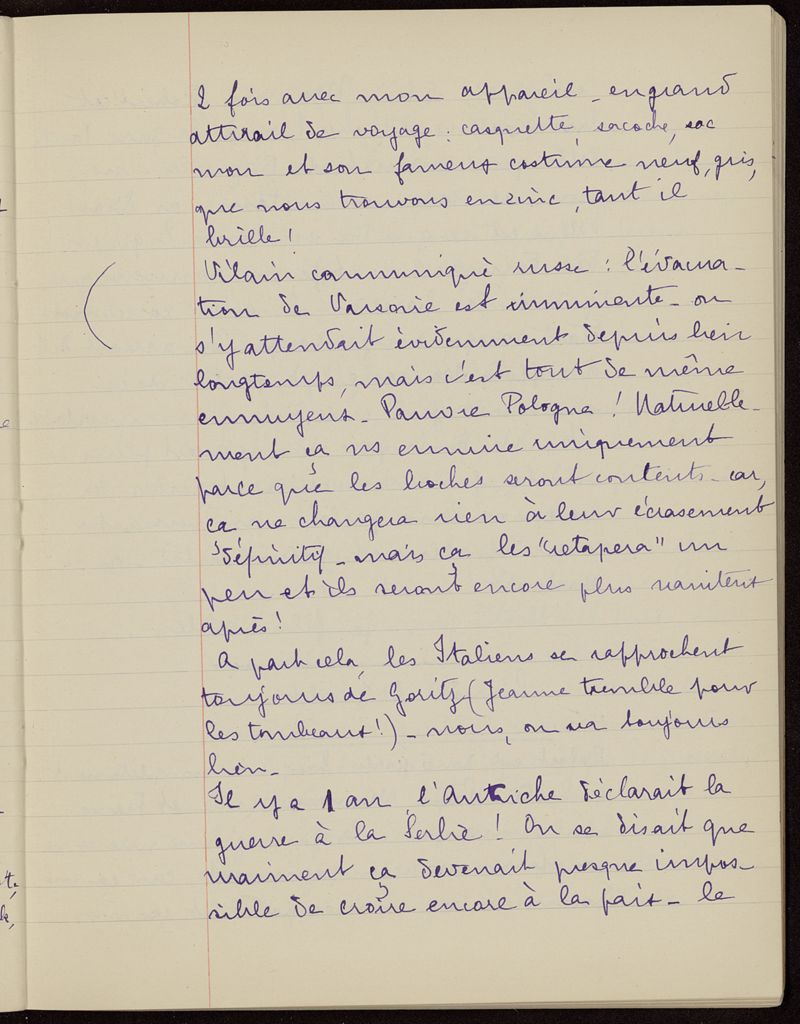 2 fois avec mon appareil – en grand
attirail de voyage : casquette, sacoche, sac
mou et son fameux costume neuf, gris,
que nous trouvons en zinc, tant il
brille !
Vilain communiqué russe : l'évacua–
tion de Varsovie est imminente – on
s'y attendait évidemment depuis bien
longtemps, mais c'est tout de même
ennuyeux – Pauvre Pologne ! Naturelle–
ment ça ns ennuie uniquement
parce que les boches seront contents – car,
ça ne changera rien à leur écrasement
définitif – mais ça les "retapera" un
peu et ils seront encore plus vaniteux
après !
A part cela, les Italiens se rapprochent
toujours de Goritz (Jeanne tremble pour
les tombeaux !) – nous, on va toujours
bien –
Il y a 1 an l'Autriche déclarait la
guerre à la Serbie ! On se disait que
vraiment ça devenait presque impos–
sible de croire encore à la paix – le